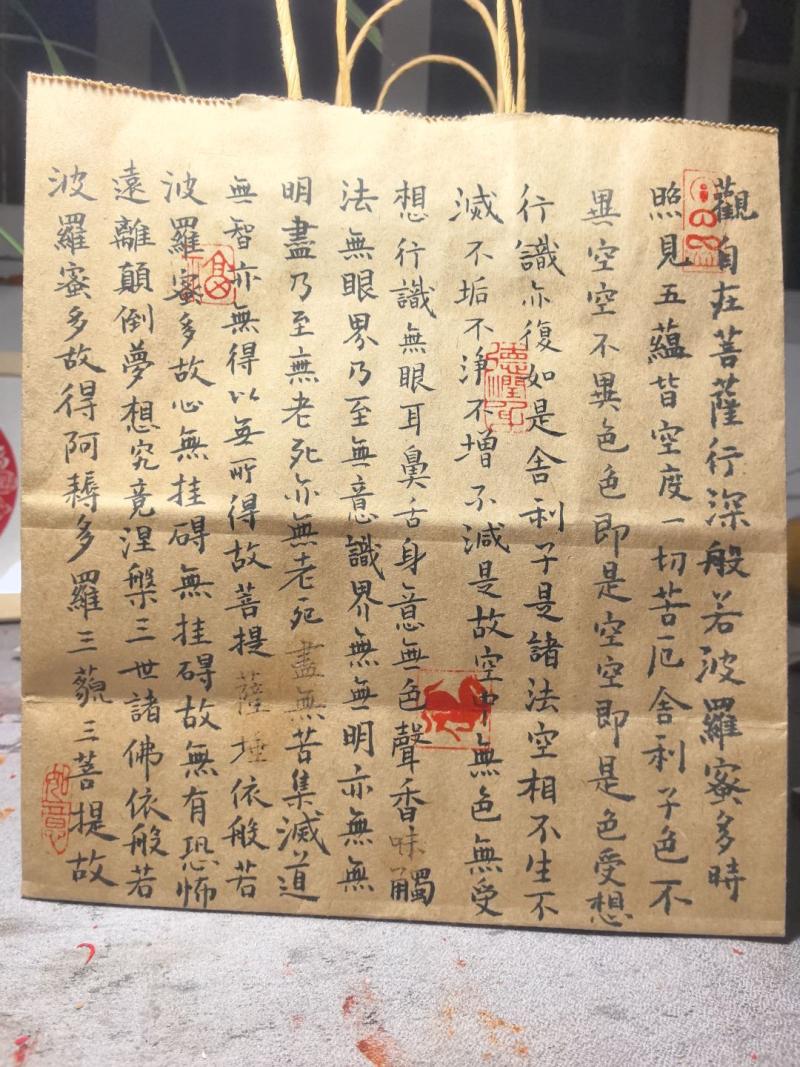 觀自在菩薩行深般若波羅蜜多時
照見五蘊皆空度一切苦厄舍利子色不
異空空不異色色即是空空即是色受想
行識亦復如是舍利子是諸法空相不生不
滅不垢不浄不增不減是故空中無色無受
想行識無眼耳鼻舌身意無色聲香味觸
法無眼界乃至無意識界無無明亦無無
明盡乃至無老死亦無老死盡無苦集滅道
無智亦無得以無所得故菩提薩埵依般若
波羅蜜多故心無挂碍無挂碍故無有恐怖
遠離顛倒夢想究竟涅槃三世諸佛依般若
波羅蜜多故得阿耨多羅三藐三菩提故
德潤身
如意